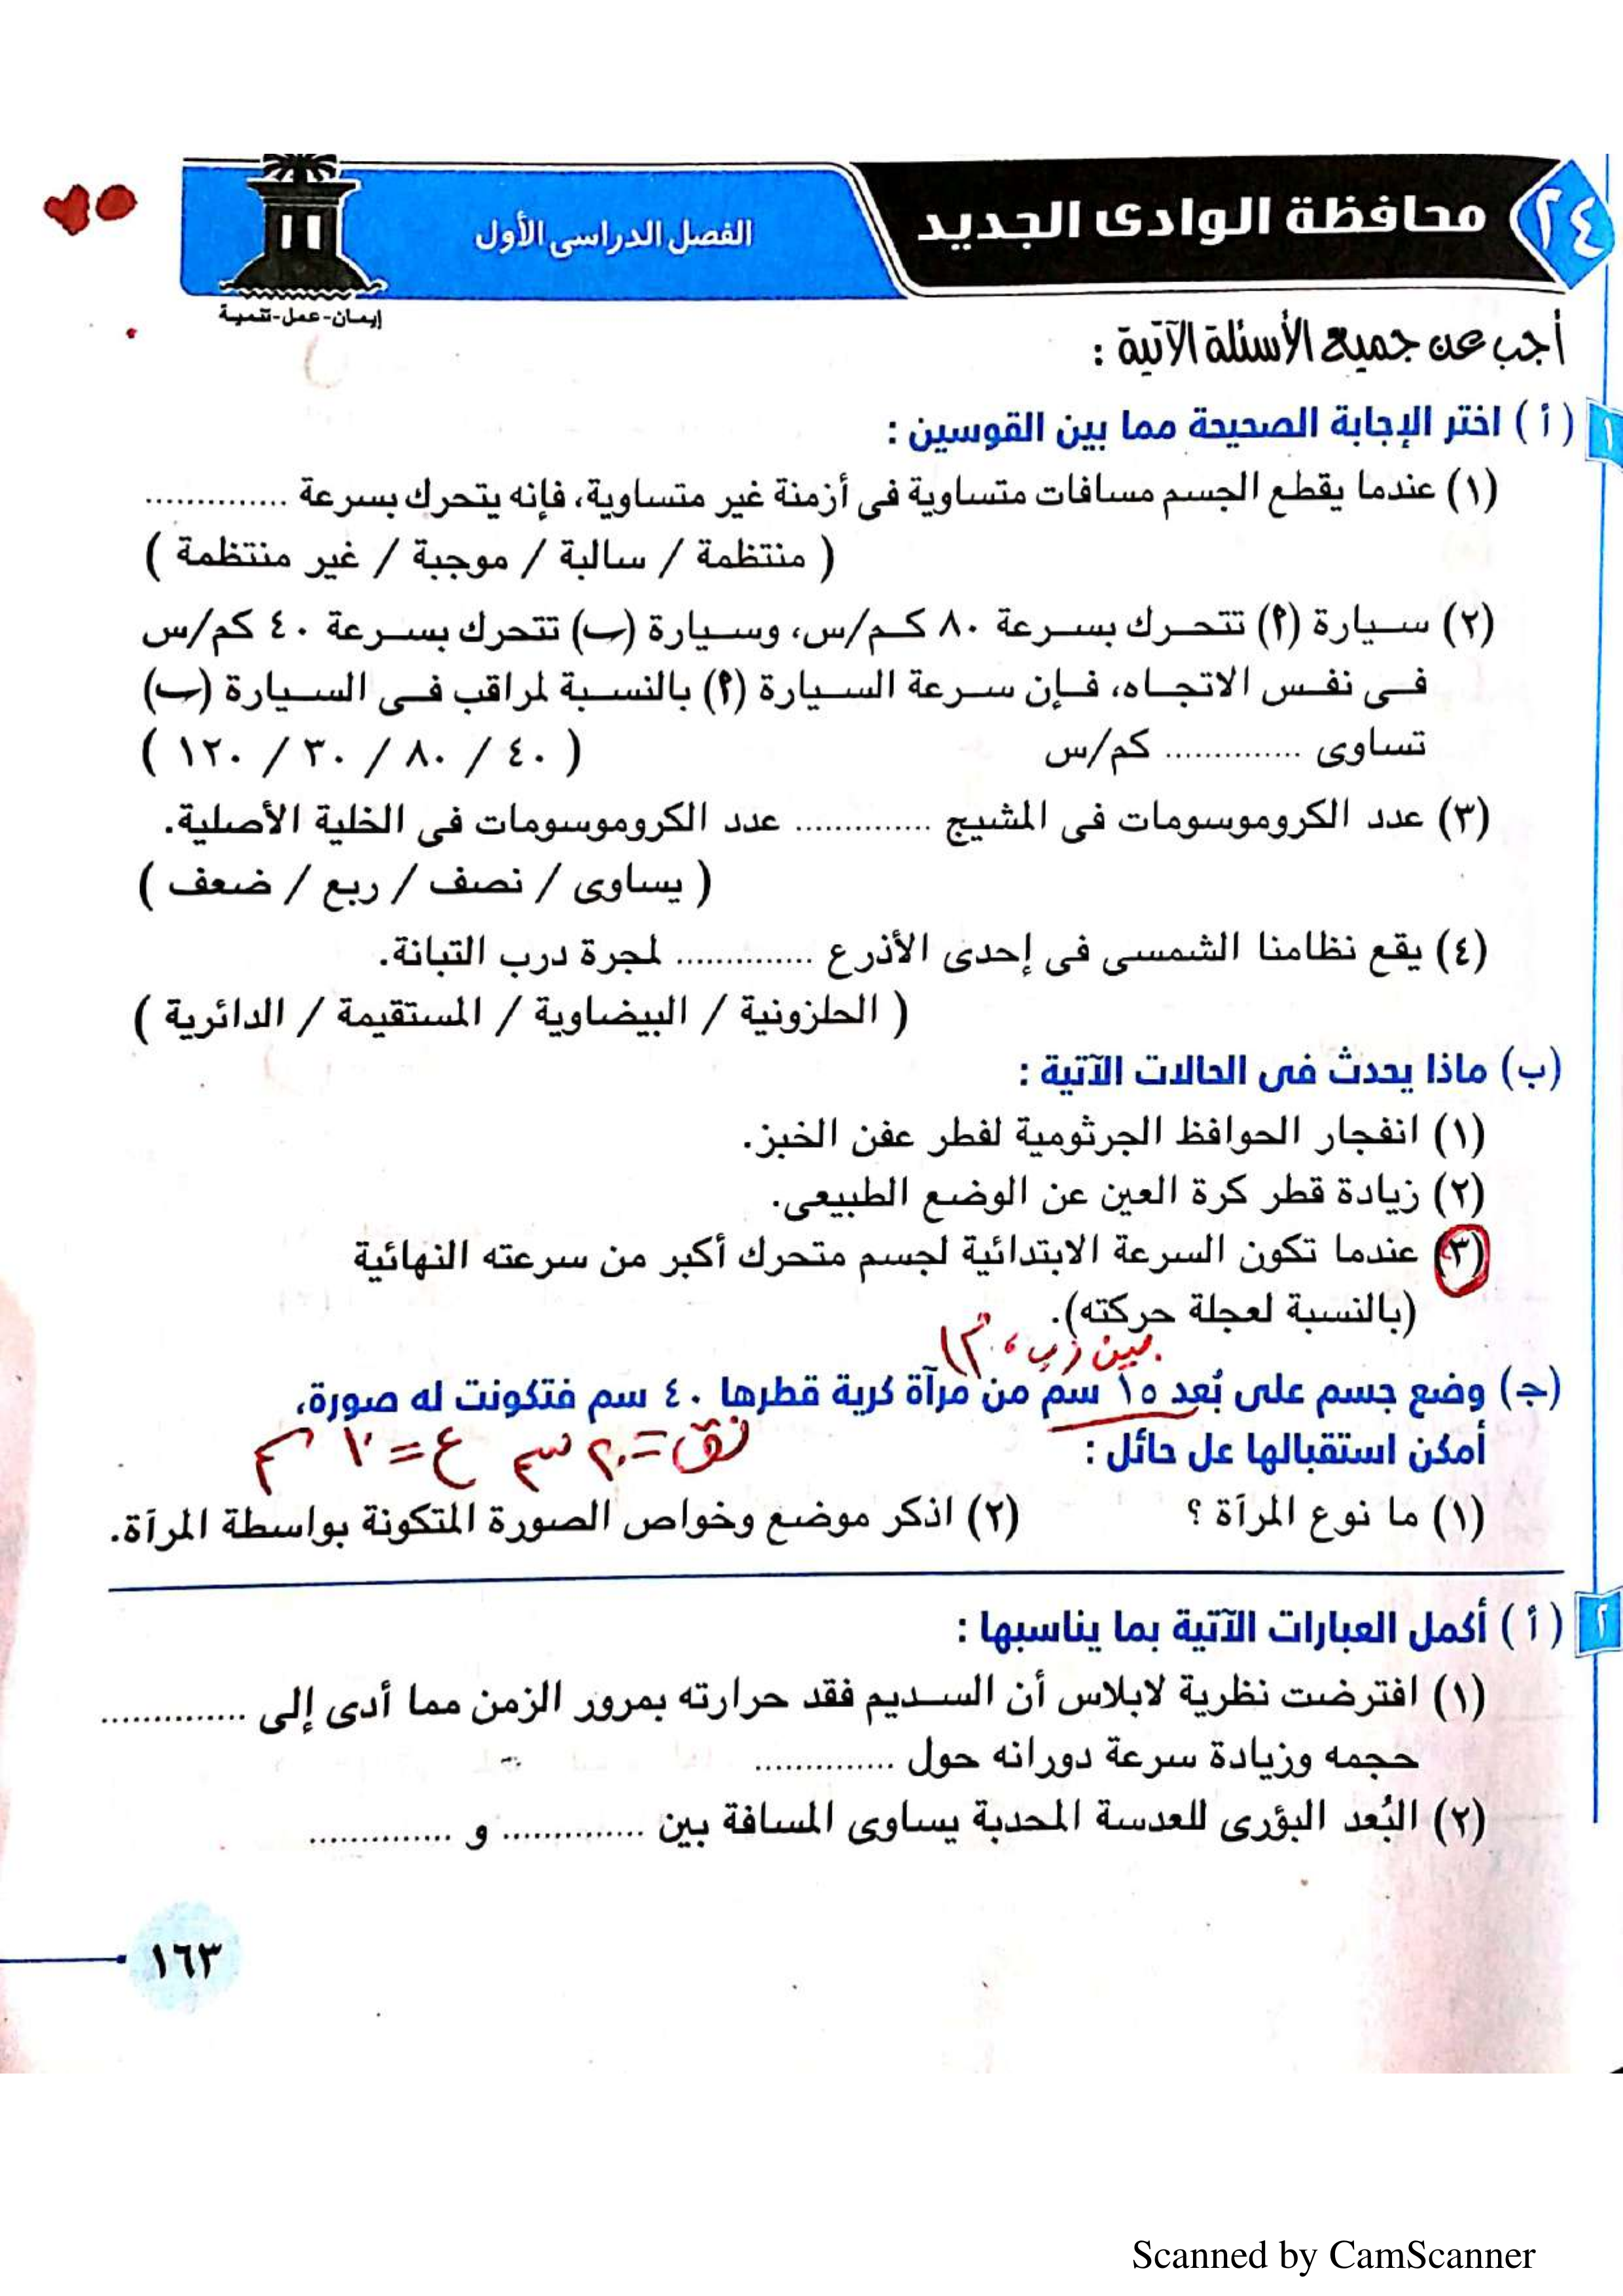 ٢٤ محافظة الوادى الجديد
الفصل الدراسى الأول
١١
إيمان-عمل-تنمية
٢٥
أجب عن جميع الأسئلة الآتية :
١ ( أ ) اختر الإجابة الصحيحة مما بين القوسين :
(١) عندما يقطع الجسم مسافات متساوية فى أزمنة غير متساوية، فإنه يتحرك بسرعة ..............
( منتظمة / سالبة / موجبة / غير منتظمة )
(٢) سيارة (٩) تتحرك بسرعة ٨٠ كم/س، وسيارة (ب) تتحرك بسرعة ٤٠ كم/س
فى نفس الاتجاه، فإن سرعة السيارة (٩) بالنسبة لمراقب فى السيارة (ب)
تساوى .............. كم/س ( ٤٠ / ٨٠ / ٣٠ / ١٢٠ )
(٣) عدد الكروموسومات فى المشيج .............. عدد الكروموسومات فى الخلية الأصلية.
( يساوى / نصف / ربع / ضعف )
(٤) يقع نظامنا الشمسى فى إحدى الأذرع .............. لمجرة درب التبانة.
( الحلزونية / البيضاوية / المستقيمة / الدائرية )
(ب) ماذا يحدث فى الحالات الآتية :
(١) انفجار الحوافظ الجرثومية لفطر عفن الخبز.
(٢) زيادة قطر كرة العين عن الوضع الطبيعى.
(٣) عندما تكون السرعة الابتدائية لجسم متحرك أكبر من سرعته النهائية
(بالنسبة لعجلة حركته).
بين
(جـ) وضع جسم على بُعد ١٥ سم من مرآة كرية قطرها ٤٠ سم فتكونت له صورة،
أمكن استقبالها عل حائل :
نق = ٢٠ سم ع = ١٠ سم
(١) ما نوع المرآة ؟ (٢) اذكر موضع وخواص الصورة المتكونة بواسطة المرآة.
٢ ( أ ) أكمل العبارات الآتية بما يناسبها :
(١) افترضت نظرية لابلاس أن السديم فقد حرارته بمرور الزمن مما أدى إلى ..............
حجمه وزيادة سرعة دورانه حول ..............
(٢) البُعد البؤرى للعدسة المحدبة يساوى المسافة بين .............. و ..............
١٦٣
Scanned by CamScanner